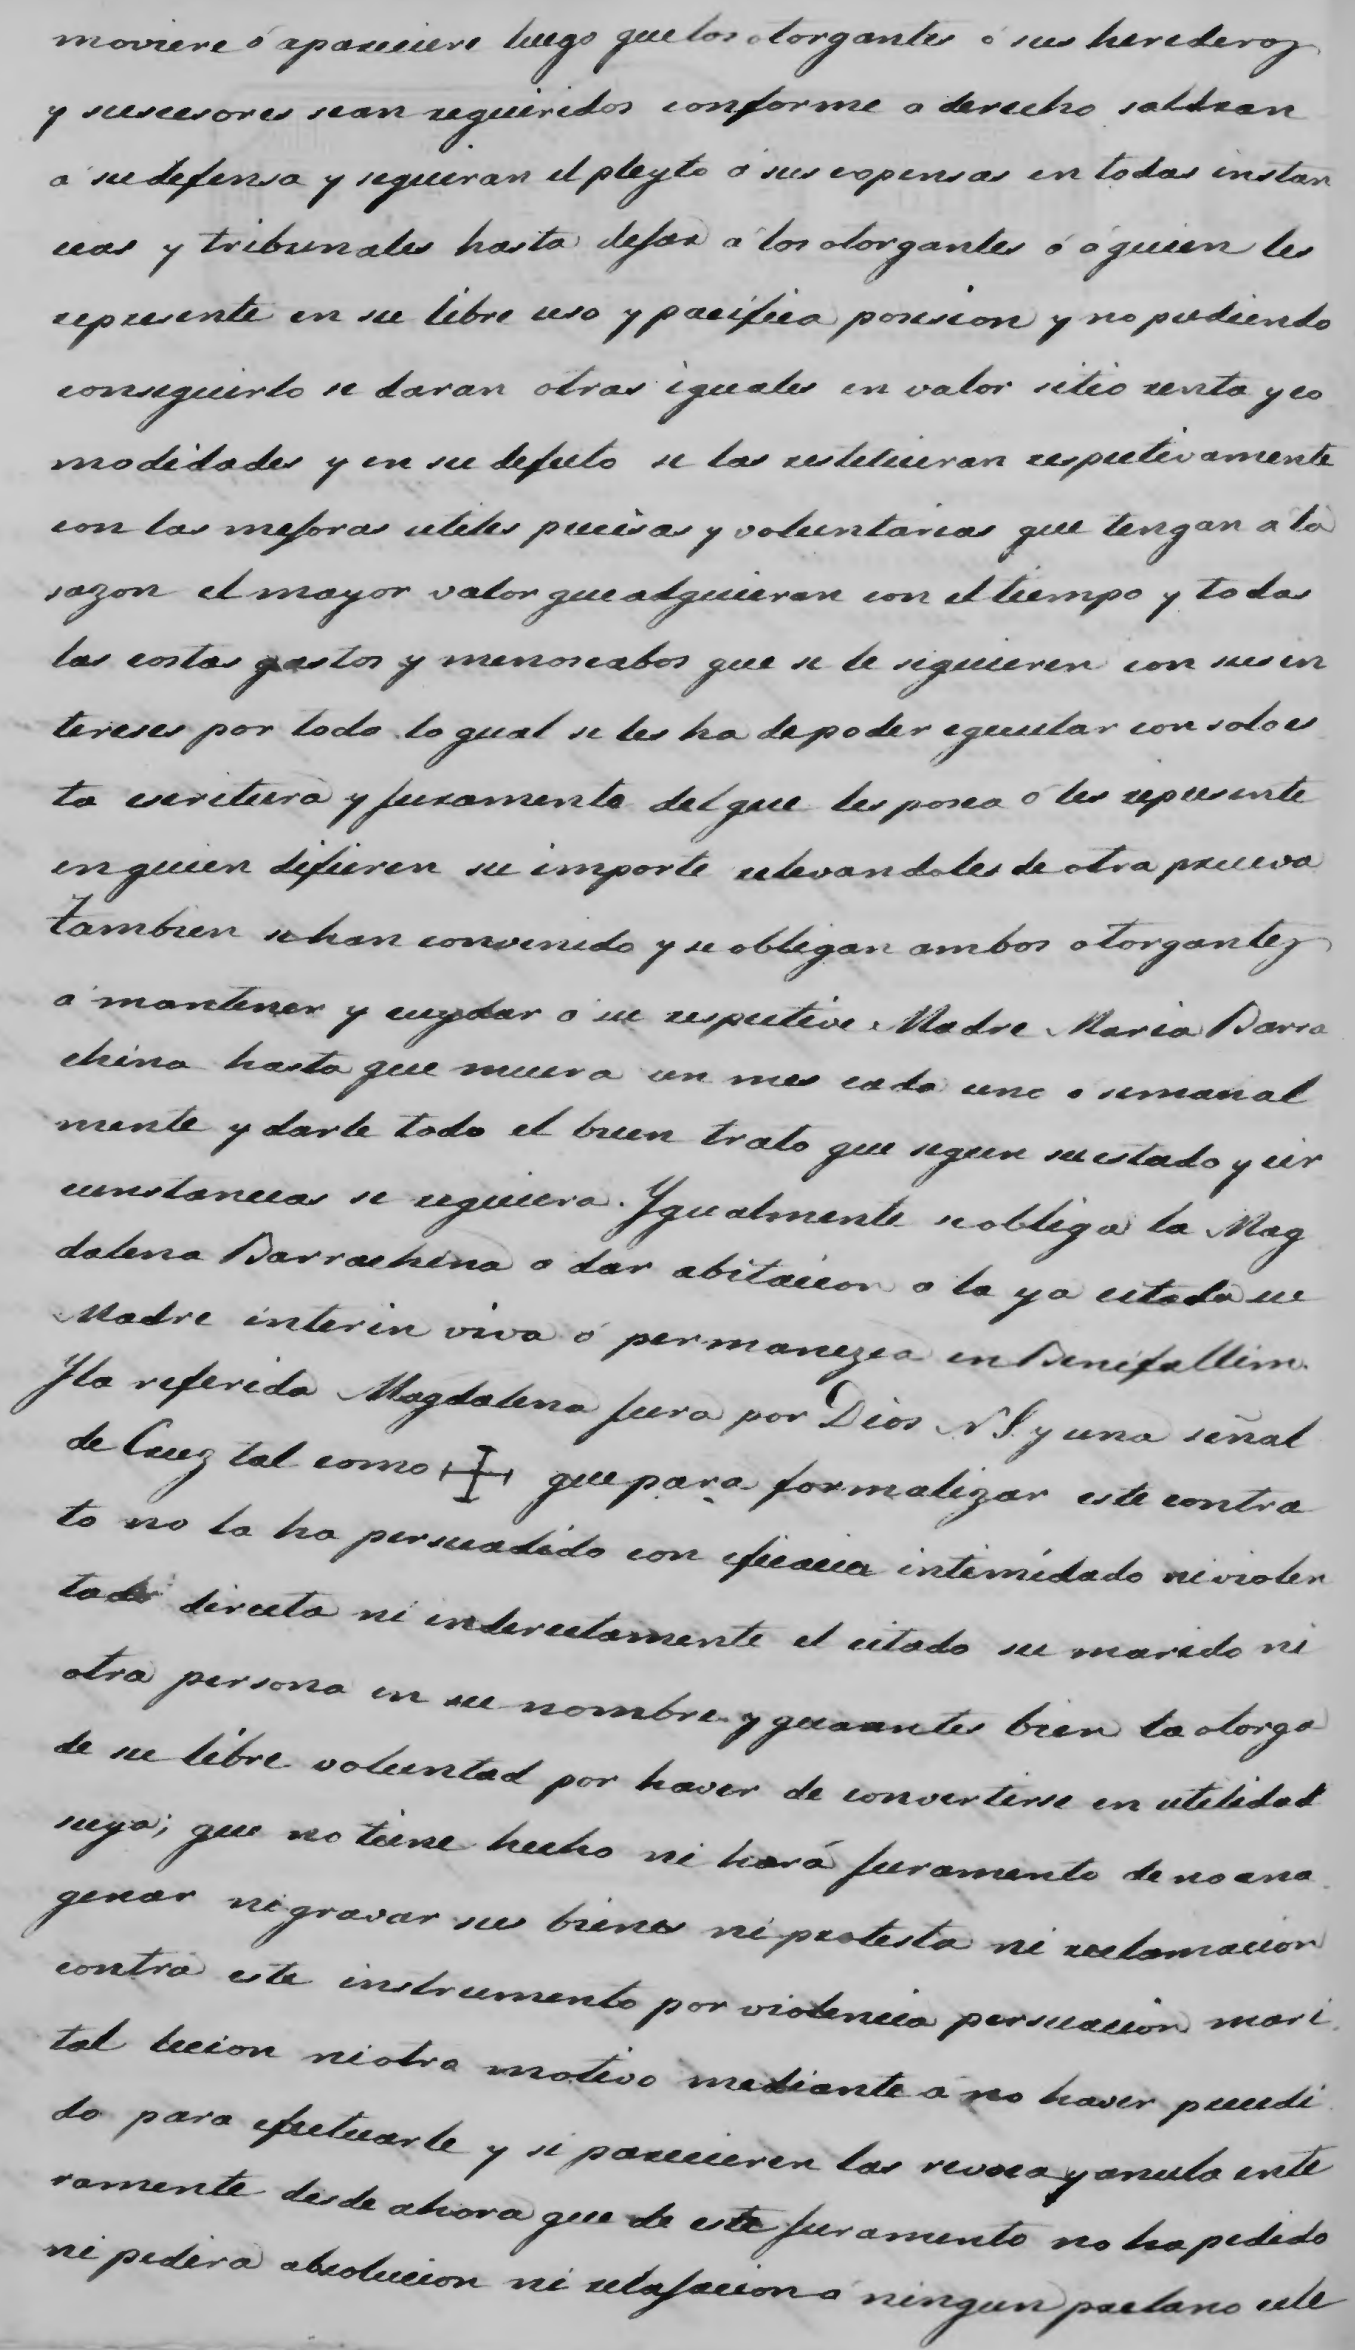 moviere ó apareciere luego que los otorgantes ó sus herederos
y succesores sean requeridos conforme a derecho saldran
a su defensa y seguiran el pleyto a sus expensas en todas instan
cias y tribunales hasta dejar a los otorgantes ó a quien les
represente en su libre uso y pacifica posesion y no pudiendo
conseguirlo se daran otras iguales en valor sitio renta y co
modidades y en su defecto se las restituieran respectivamente
con las mejoras utiles precisas y voluntarias que tengan a la
sazon el mayor valor que adquieran con el tiempo y todas
las costas gastos y menoscabos que se le siguieren con sus in
tereses por todo lo qual se les ha de poder egecutar con solo es
ta escritura y juramento del que les posea ó les represente
en quien difieren su importe relevandoles de otra prueva
Tambien se han convenido y se obligan ambos otorgantes
a mantener y cuydar a su respective Madre Maria Barra
china hasta que muera un mes cada uno o semanal
mente y darle todo el buen trato que segun su estado y cir
cunstancias se requiera. Ygualmente se obliga la Mag
dalena Barrachina a dar abitacion a la ya citada su
Madre interin viva ó permanezca en Benifallim.
Y la referida Magdalena jura por Dios N S. y una señal
de Cruz tal como ✠ que para formalizar este contra
to no la ha persuadido con eficacia intimidado ni violen
tado directa ni indirectamente el citado su marido ni
otra persona en su nombre y que antes bien la otorga
de su libre voluntad por haver de convertirse en utilidad
suya; que no tiene hecho ni hará juramento de no ena
genar ni gravar sus bienes ni protesta ni reclamacion
contra este instrumento por violencia persuacion mari
tal lecion ni otro motivo mediante a no haver precedi
do para efectuarle y si parecieren las revoca y anula ente
ramente desde ahora que de este juramento no ha pedido
ni pedira absolucion ni relajacion a ningun prelano ecle